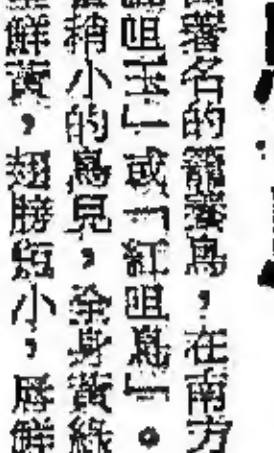 著名的籠養鳥，在南方
咀玉」或「紅咀鳥」。
稍小的鳥兒，全身黃綠
鮮黃，翅膀短小，唇鮮